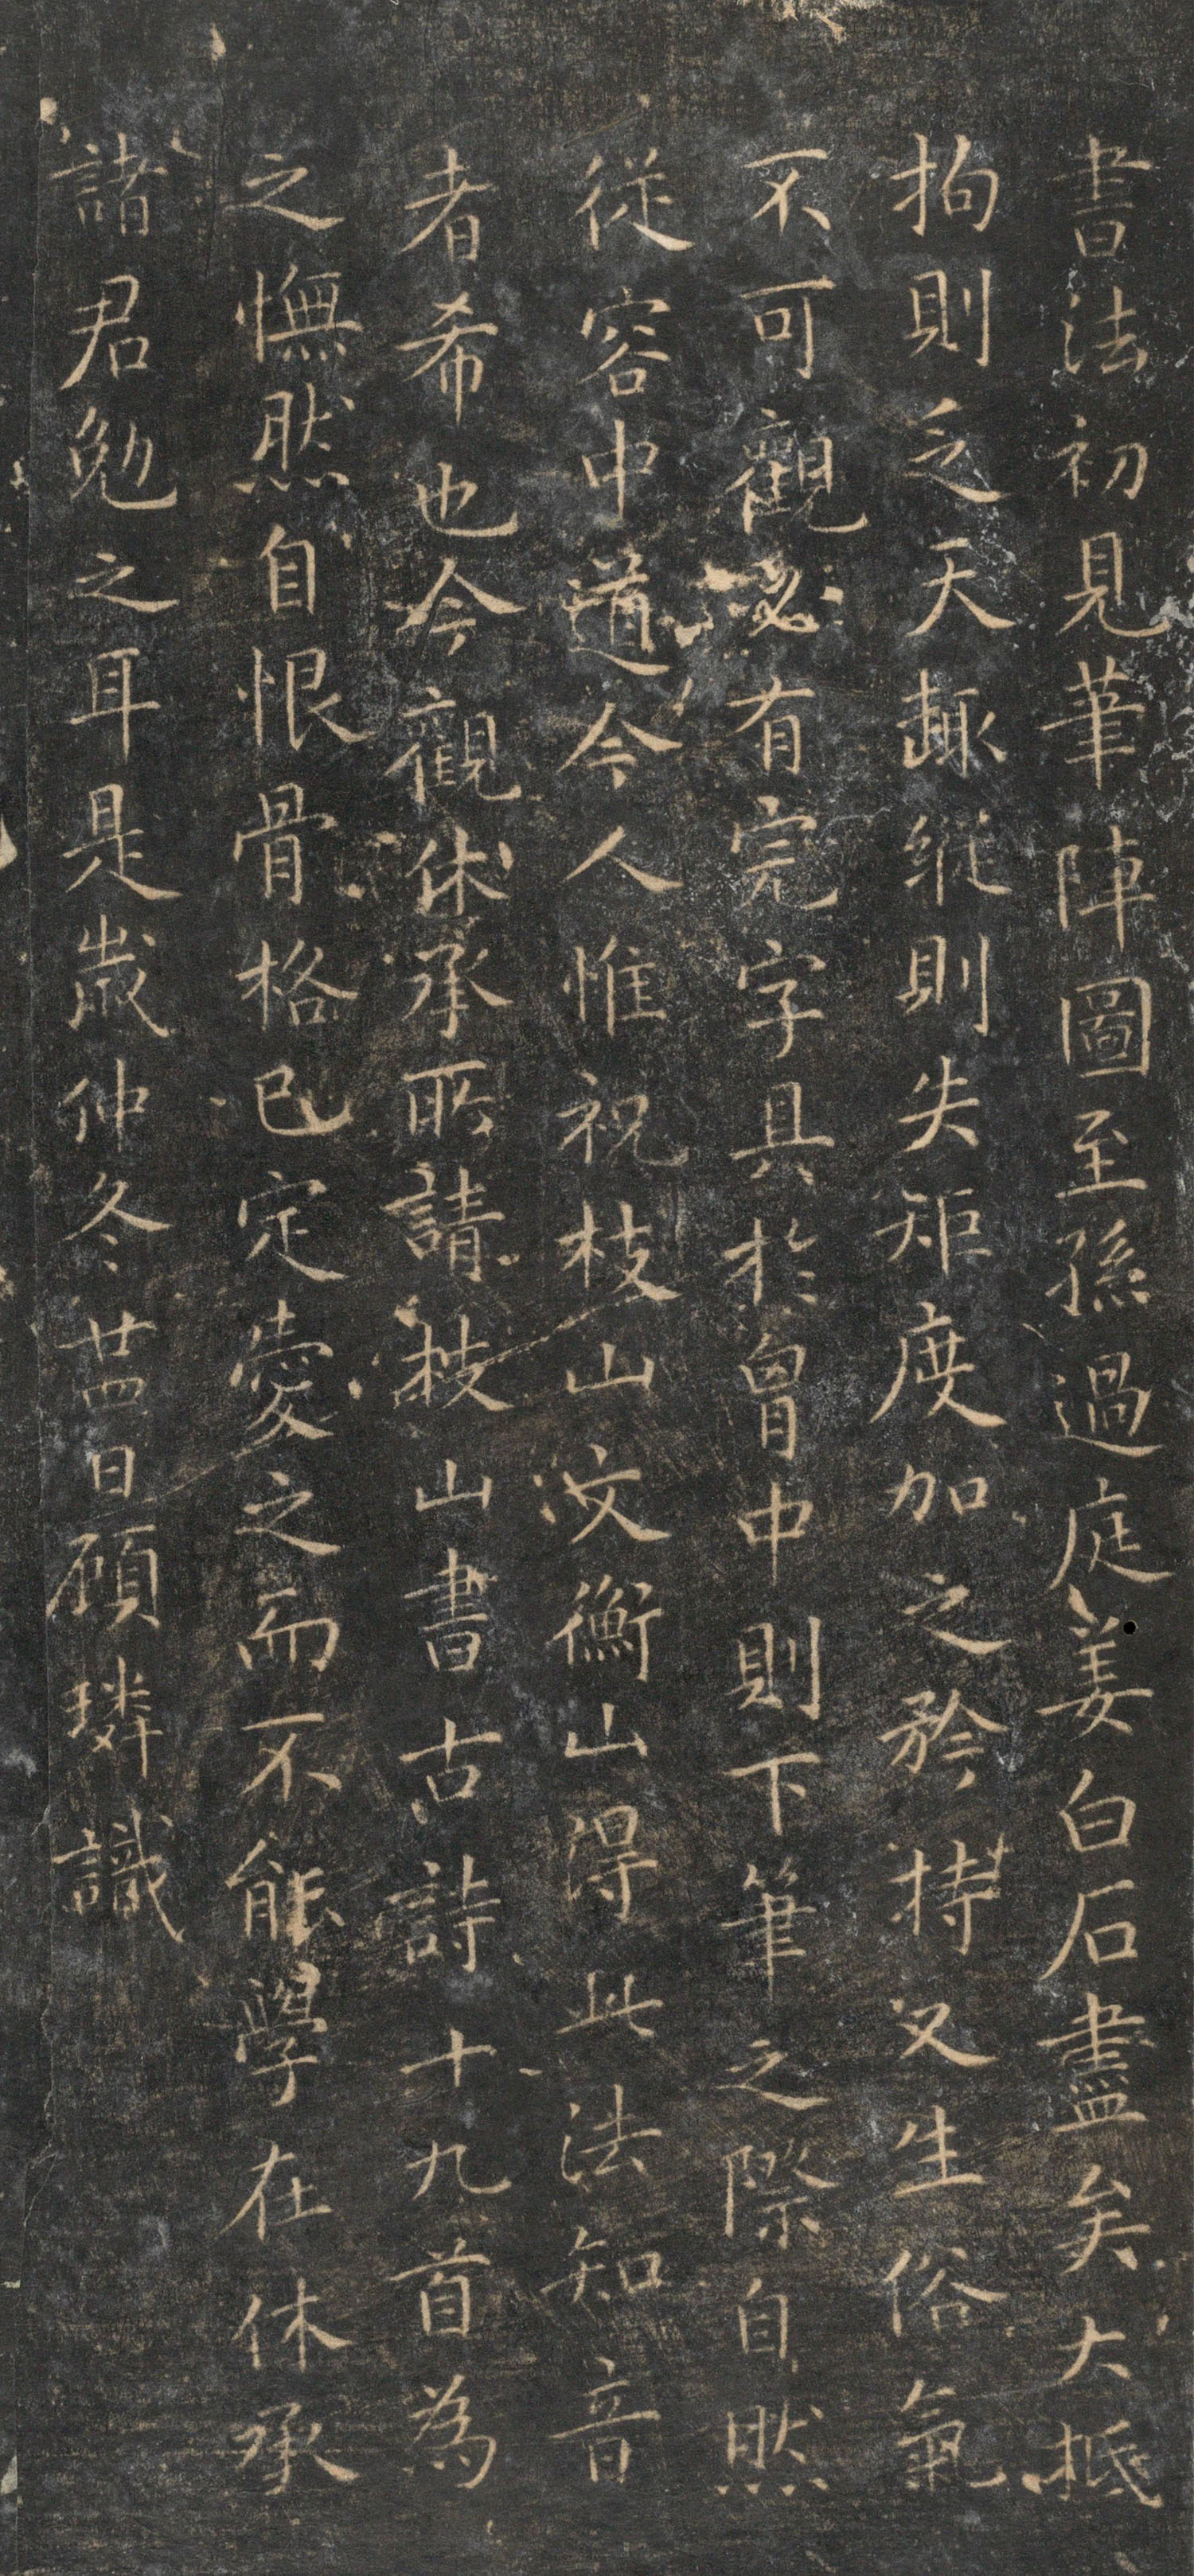 書法初見筆陣圖至孫過庭姜白石盡矣大抵
拘則乏天趣縱則失矩度加之矜持又生俗氣
不可觀必有完字具於胷中則下筆之際自然
從容中道今人惟祝枝山文衡山得此法知音
者希也今觀休承所請枝山書古詩十九首為
之憮然自恨骨格已定愛之而不能學在休承
諸君勉之耳是歲仲冬廿四日顧璘識